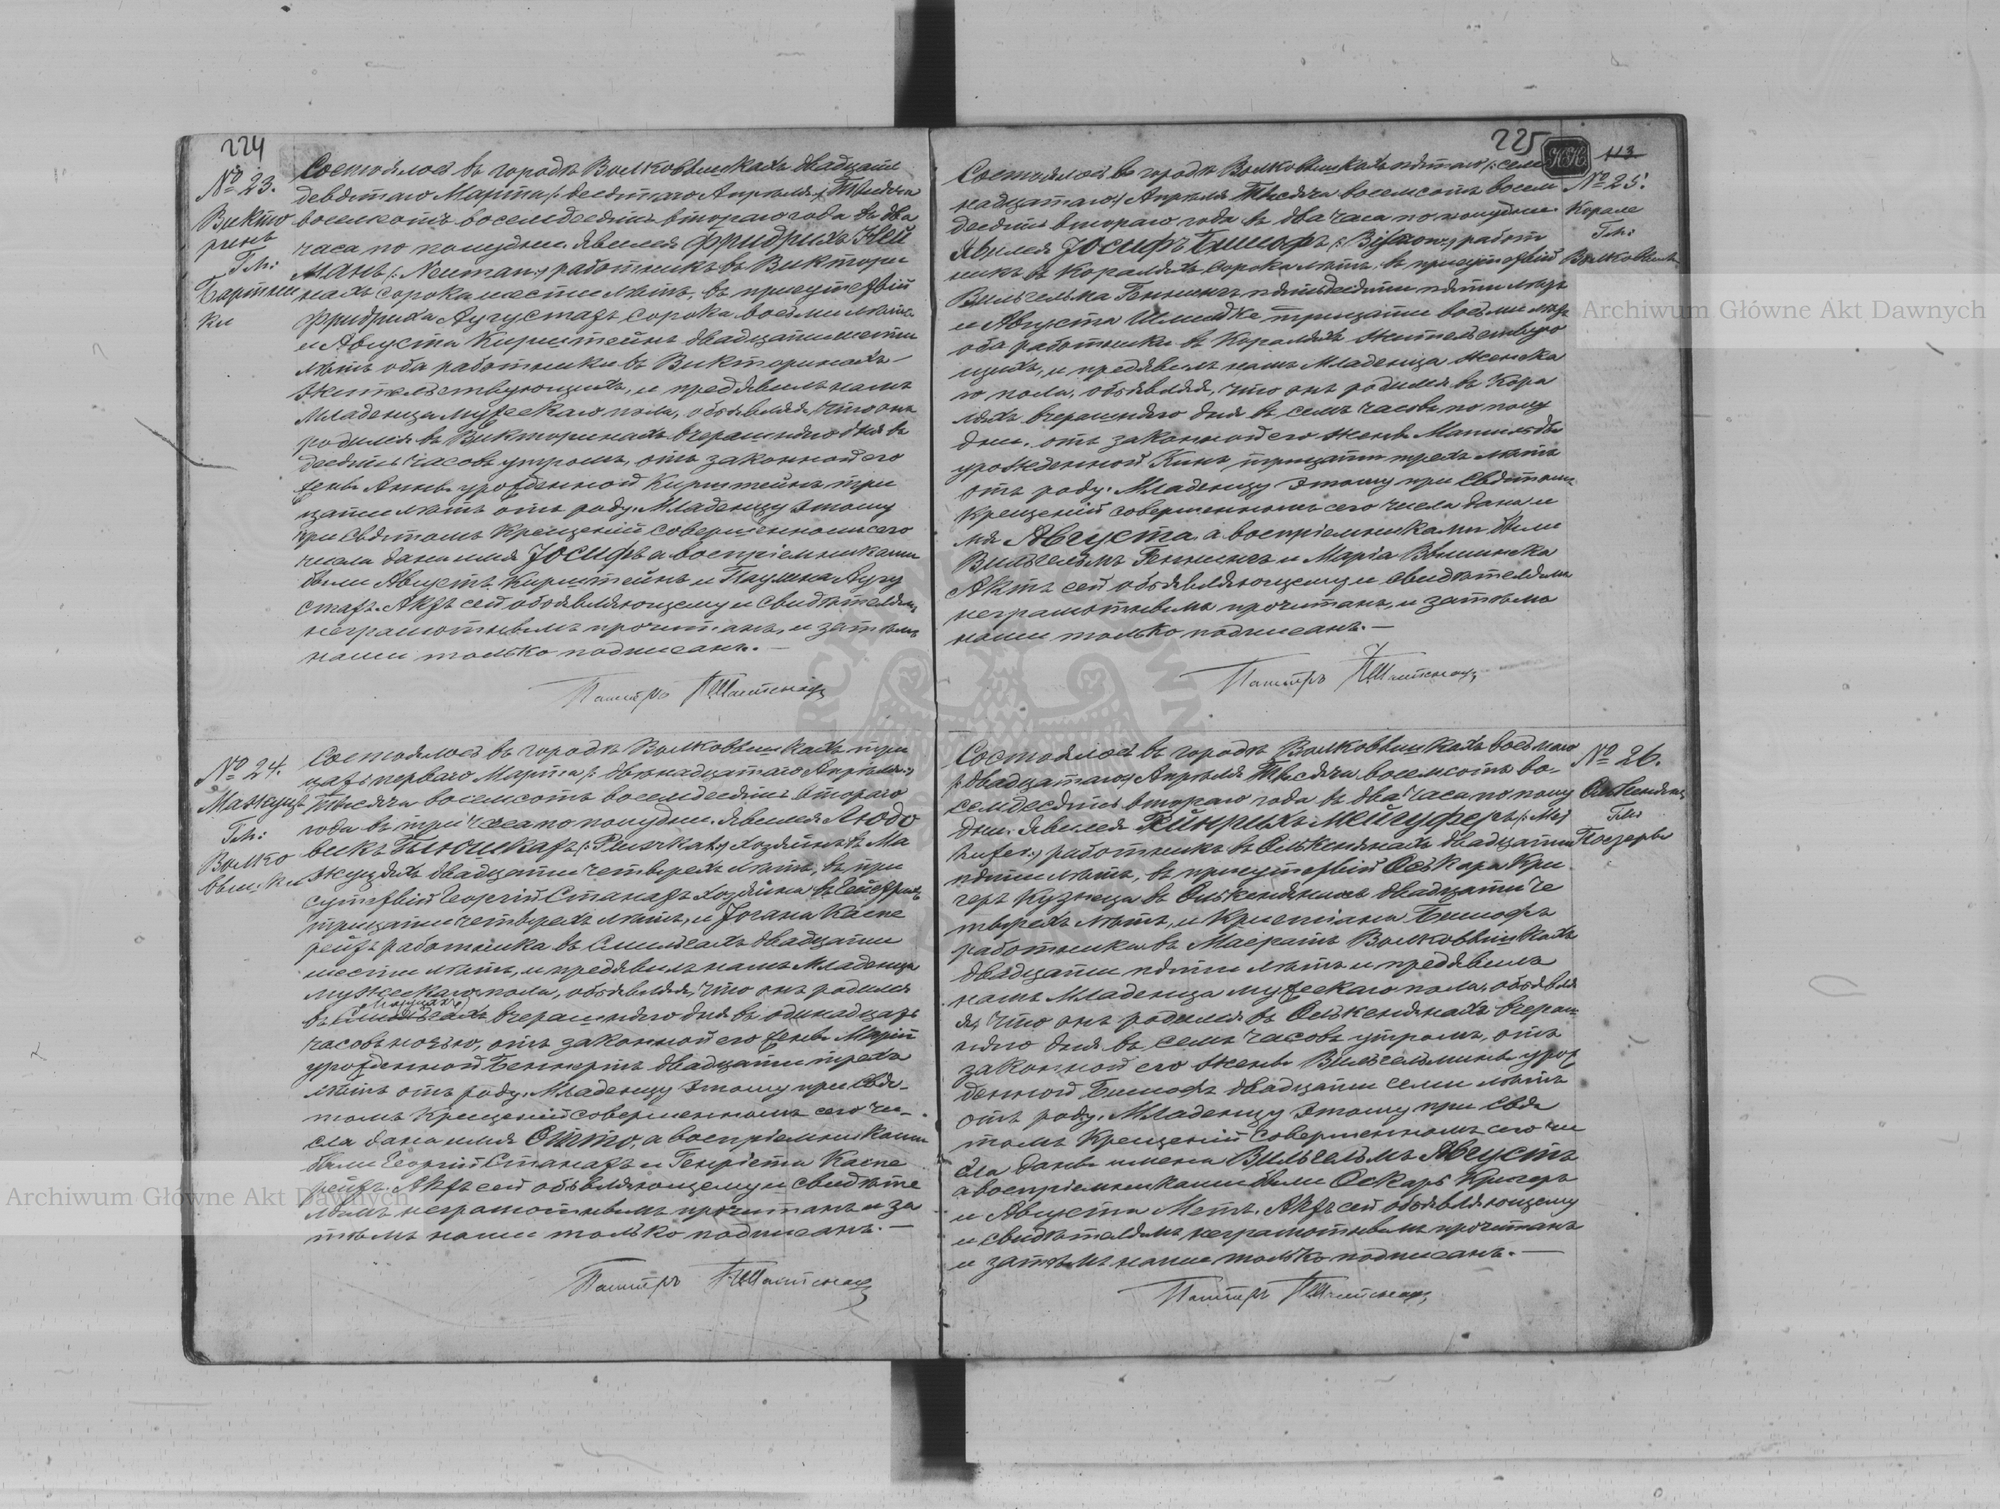 224
№ 23.
Викто
ринъ
Гм:
Бартни
ки
Состоялось въ городѣ Волковышкахъ двадцать
девятаго Марта /: десятаго Апрѣля :/ Тысяча
восемсотъ восемдесятъ втораго года въ два
часа по полудни. Явился Фридрихъ Ней
манъ /: Neuman :/ работникъ въ Виктори
нахъ сорока шести лѣтъ, въ присутствіи
Фридриха Аугустатъ сорока восьми лѣтъ
и Августа Кирштейнъ двадцати шести
лѣтъ оба работники въ Викторинахъ
жительствующихъ, и предявилъ намъ
младенца мужескаго пола, объявляя, что онъ
родился въ Викторинахъ вчерашняго дня въ
десять часовъ утромъ, отъ законной его
жены Анны урожденной Кирштейнъ три
цати лѣтъ отъ роду. Младенцу этому
при Святомъ Крещеніи совершенномъ сего
числа дано имя Іосифъ а воспріемниками
были Августъ Кирштейнъ и Паулина Аугу
статъ. Актъ сей объявляющему и свидѣтелямъ
неграмотнымъ прочитанъ, и затѣмъ
нами только подписанъ. —
Пасторъ
№ 24.
Мажуцѣ
Гм:
Волко
вышки
Состоялось въ городѣ Волковышкахъ три
цать перваго Марта /: двѣнадцатаго Апрѣля :/
Тысяча восемсотъ восемдесятъ втораго
года въ три часа по полудни. Явился Людо
викъ хозяинъ въ Ма
жуцяхъ двадцати четырехъ лѣтъ, въ при
сутствіи Георгій Станатъ хозяина въ
трицати четырехъ лѣтъ, и Іогана Каспе
рейтъ работника въ двадцати
шести лѣтъ, и предявилъ намъ младенца
мужескаго пола, объявляя, что онъ родился
въ вчерашняго дня въ одинадцать
часовъ ночью, отъ законной его жены Маріи
урожденной двадцати трехъ
лѣтъ отъ роду. Младенцу этому при Свя-
томъ Крещеніи совершенномъ сего чи-
сла дано имя Отто, а воспріемниками
были Георгій Станатъ и Генріета Каспе
рейтъ. Актъ сей объявляющему и свидѣте
лямъ неграмотнымъ прочитанъ и за
тѣмъ нами только подписанъ. —
Пасторъ
225
113
№ 25.
Корале
Гм:
Волковыш.
Состоялось въ городѣ Волковышкахъ пятаго /: сем
надцатаго :/ Апрѣля Тысяча восемсотъ восем
десятъ втораго года въ два часа по полудни.
Явился Іосифъ Бишофъ /: :/ работ
никъ въ Кораляхъ сорока лѣтъ, въ присутствіи
Вильгельма Геннингъ пятьдесяти пяти лѣтъ
и Августа трицати восьми лѣтъ
оба работники въ Кораляхъ жительствую
щихъ, и предявилъ намъ младенца женска
го пола, объявляя, что онъ родился въ Кора
ляхъ вчерашняго дня въ семь часовъ по полу
дни, отъ законной его жены Матильды
урожденной Кинъ трицати трехъ лѣтъ
отъ роду. Младенцу этому при Святомъ
Крещеніи совершенномъ сего числа дано и
мя Августа, а воспріемниками были
Вильгельмъ Геннингъ и Марія
Актъ сей объявляющему и свидѣтелямъ
неграмотнымъ прочитанъ, и затѣмъ
нами только подписанъ. —
Пасторъ
№ 26.
Гм:
Состоялось въ городѣ Волковышкахъ восьмаго
/: двадцатаго :/ Апрѣля Тысяча восемсотъ во-
семдесятъ втораго года въ два часа по полу
дни. Явился Гейнрихъ Мейгуферъ /: Mei
hufer :/ работникъ въ Олькенянахъ двадцати
пяти лѣтъ, въ присутствіи Оскара Кри
геръ Кузнеца въ Олькенянахъ двадцати че
тырехъ лѣтъ, и Кристіана Бишофъ
работника въ Маіоратѣ Волковышкахъ
двадцати пяти лѣтъ и предявилъ
намъ младенца мужескаго пола, объявля
я, что онъ родился въ Олькенянахъ вчераш
няго дня въ семь часовъ утромъ, отъ
законной его жены Вильгельмины урож
денной Бишофъ двадцати семи лѣтъ
отъ роду. Младенцу этому при Свя
томъ Крещеніи совершенномъ сего чи
сла даны имена Вильгельмъ Августъ
а воспріемниками были Оскаръ Кригеръ
и Августа Метъ. Актъ сей объявляющему
и свидѣтелямъ неграмотнымъ прочитанъ
и затѣмъ нами только подписанъ. —
Пасторъ
Archiwum Główne Akt Dawnych
Archiwum Główne Akt Dawnych